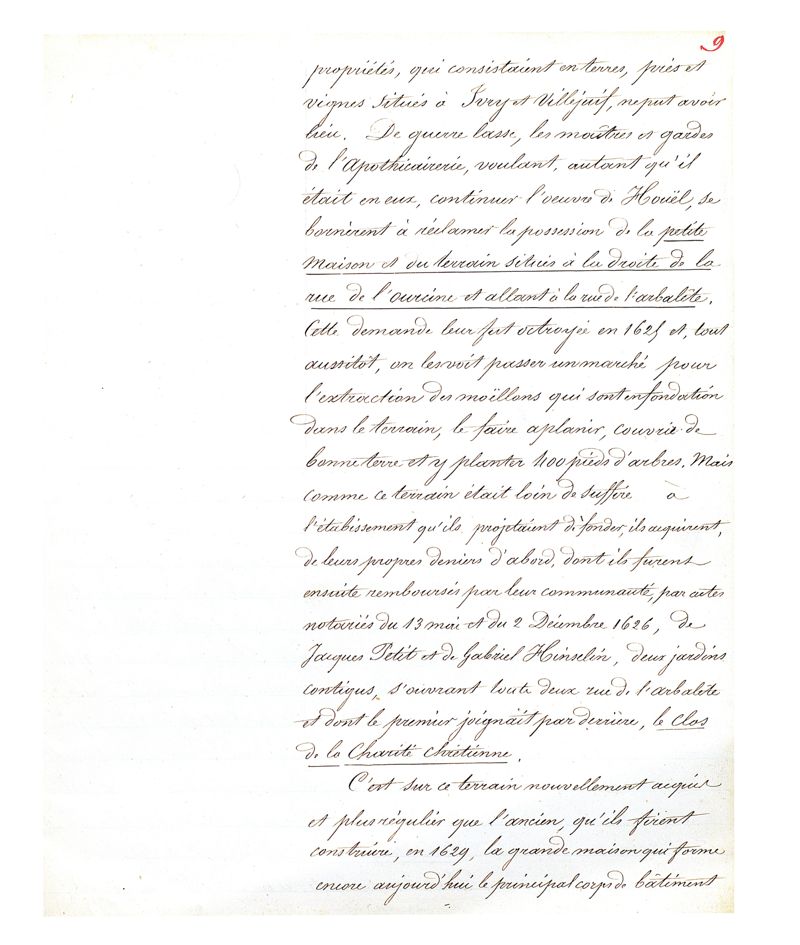 9
propriétés, qui consistaient en terres, prés et
vignes situés à Ivry et Villejuif, ne put avoir
lieu. De guerre lasse, les maîtres et gardes
de l'Apothicairerie, voulant, autant qu'il
était en eux, continuer l'oeuvre de Houël, se
bornèrent à réclamer la possession de la petite
maison et du terrain situés à la droite de la
rue de l'ourcine et allant à la rue de l'arbalête.
Cette demande leur fut octroyée en 1625 et, tout
aussitôt, on les voit passer un marché pour
l'extraction des moëllons qui sont en fondation
dans le terrain, le faire aplanir, couvrir de
bonne terre et y planter 400 pieds d'arbres. Mais
comme ce terrain était loin de suffire à
l'étabissement qu'ils projetaient de fonder, ils acquirent,
de leurs propres deniers d'abord, dont ils furent
ensuite remboursés par leur communauté, par actes
notariés du 13 mai et du 2 Décembre 1626, de
Jacques Petit et de Gabriel Hinselin, deux jardins
contigus, s'ouvrant toute deux rue de l'arbalête
et dont le premier joignait par derrière, le Clos
de la Charité chrétienne.
C'est sur ce terrain nouvellement acquis
et plus régulier que l'ancien, qu'ils firent
construire, en 1629, la grande maison qui forme
encore aujourd'hui le principal corps de bâtiment